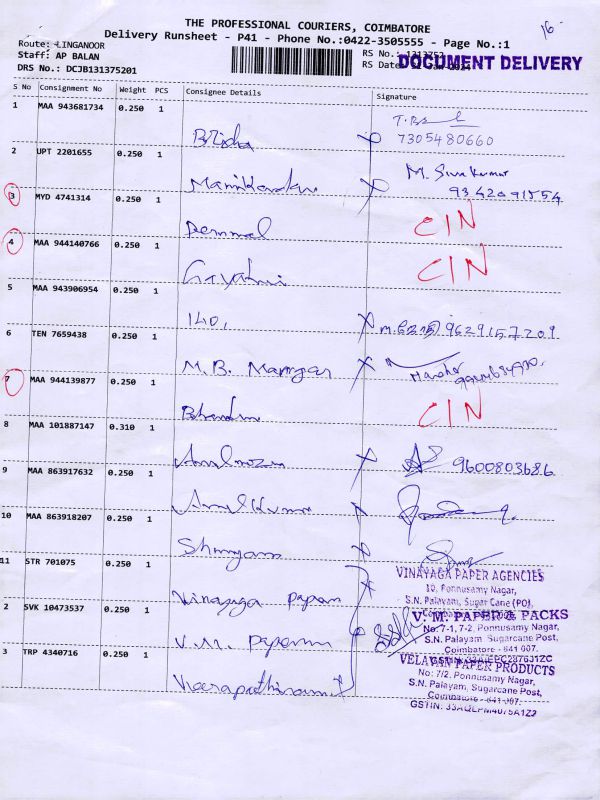 16
THE PROFESSIONAL COURIERS, COIMBATORE
Delivery Runsheet - P41 - Phone No.:0422-3505555 - Page No.:1
Route: LINGANOOR
RS No.: 1313752
Staff: AP BALAN
RS Date:
DOCUMENT DELIVERY
DRS No.: DCJB131375201
S No Consignment No Weight PCS Consignee Details Signature
1 MAA 943681734 0.250 1
7305480660
2 UPT 2201655 0.250 1
M. Sivakumar
9342091554
3 MYD 4741314 0.250 1
CIN
4 MAA 944140766 0.250 1
Gayathri CIN
5 MAA 943906954 0.250 1
9629157209
6 TEN 7659438 0.250 1
M.B. Manoj
7 MAA 944139877 0.250 1
CIN
8 MAA 101887147 0.310 1
9600803686
9 MAA 863917632 0.250 1
Arul Kumar
10 MAA 863918207 0.250 1
11 STR 701075 0.250 1
VINAYAGA PAPER AGENCIES
10, Ponnusamy Nagar,
S.N. Palayam, Sugar Cane (PO),
Vinayaga papers
2 SVK 10473537 0.250 1
V. M. PAPER & PACKS
No. 7-1, 7-2, Ponnusamy Nagar,
S.N. Palayam, Sugarcane Post,
Coimbatore - 641 007.
V.M. papers
3 TRP 4340716 0.250 1
VELAVAN PAPER PRODUCTS
No: 7/2, Ponnusamy Nagar,
S.N. Palayam, Sugarcane Post,
Coimbatore - 641-007.